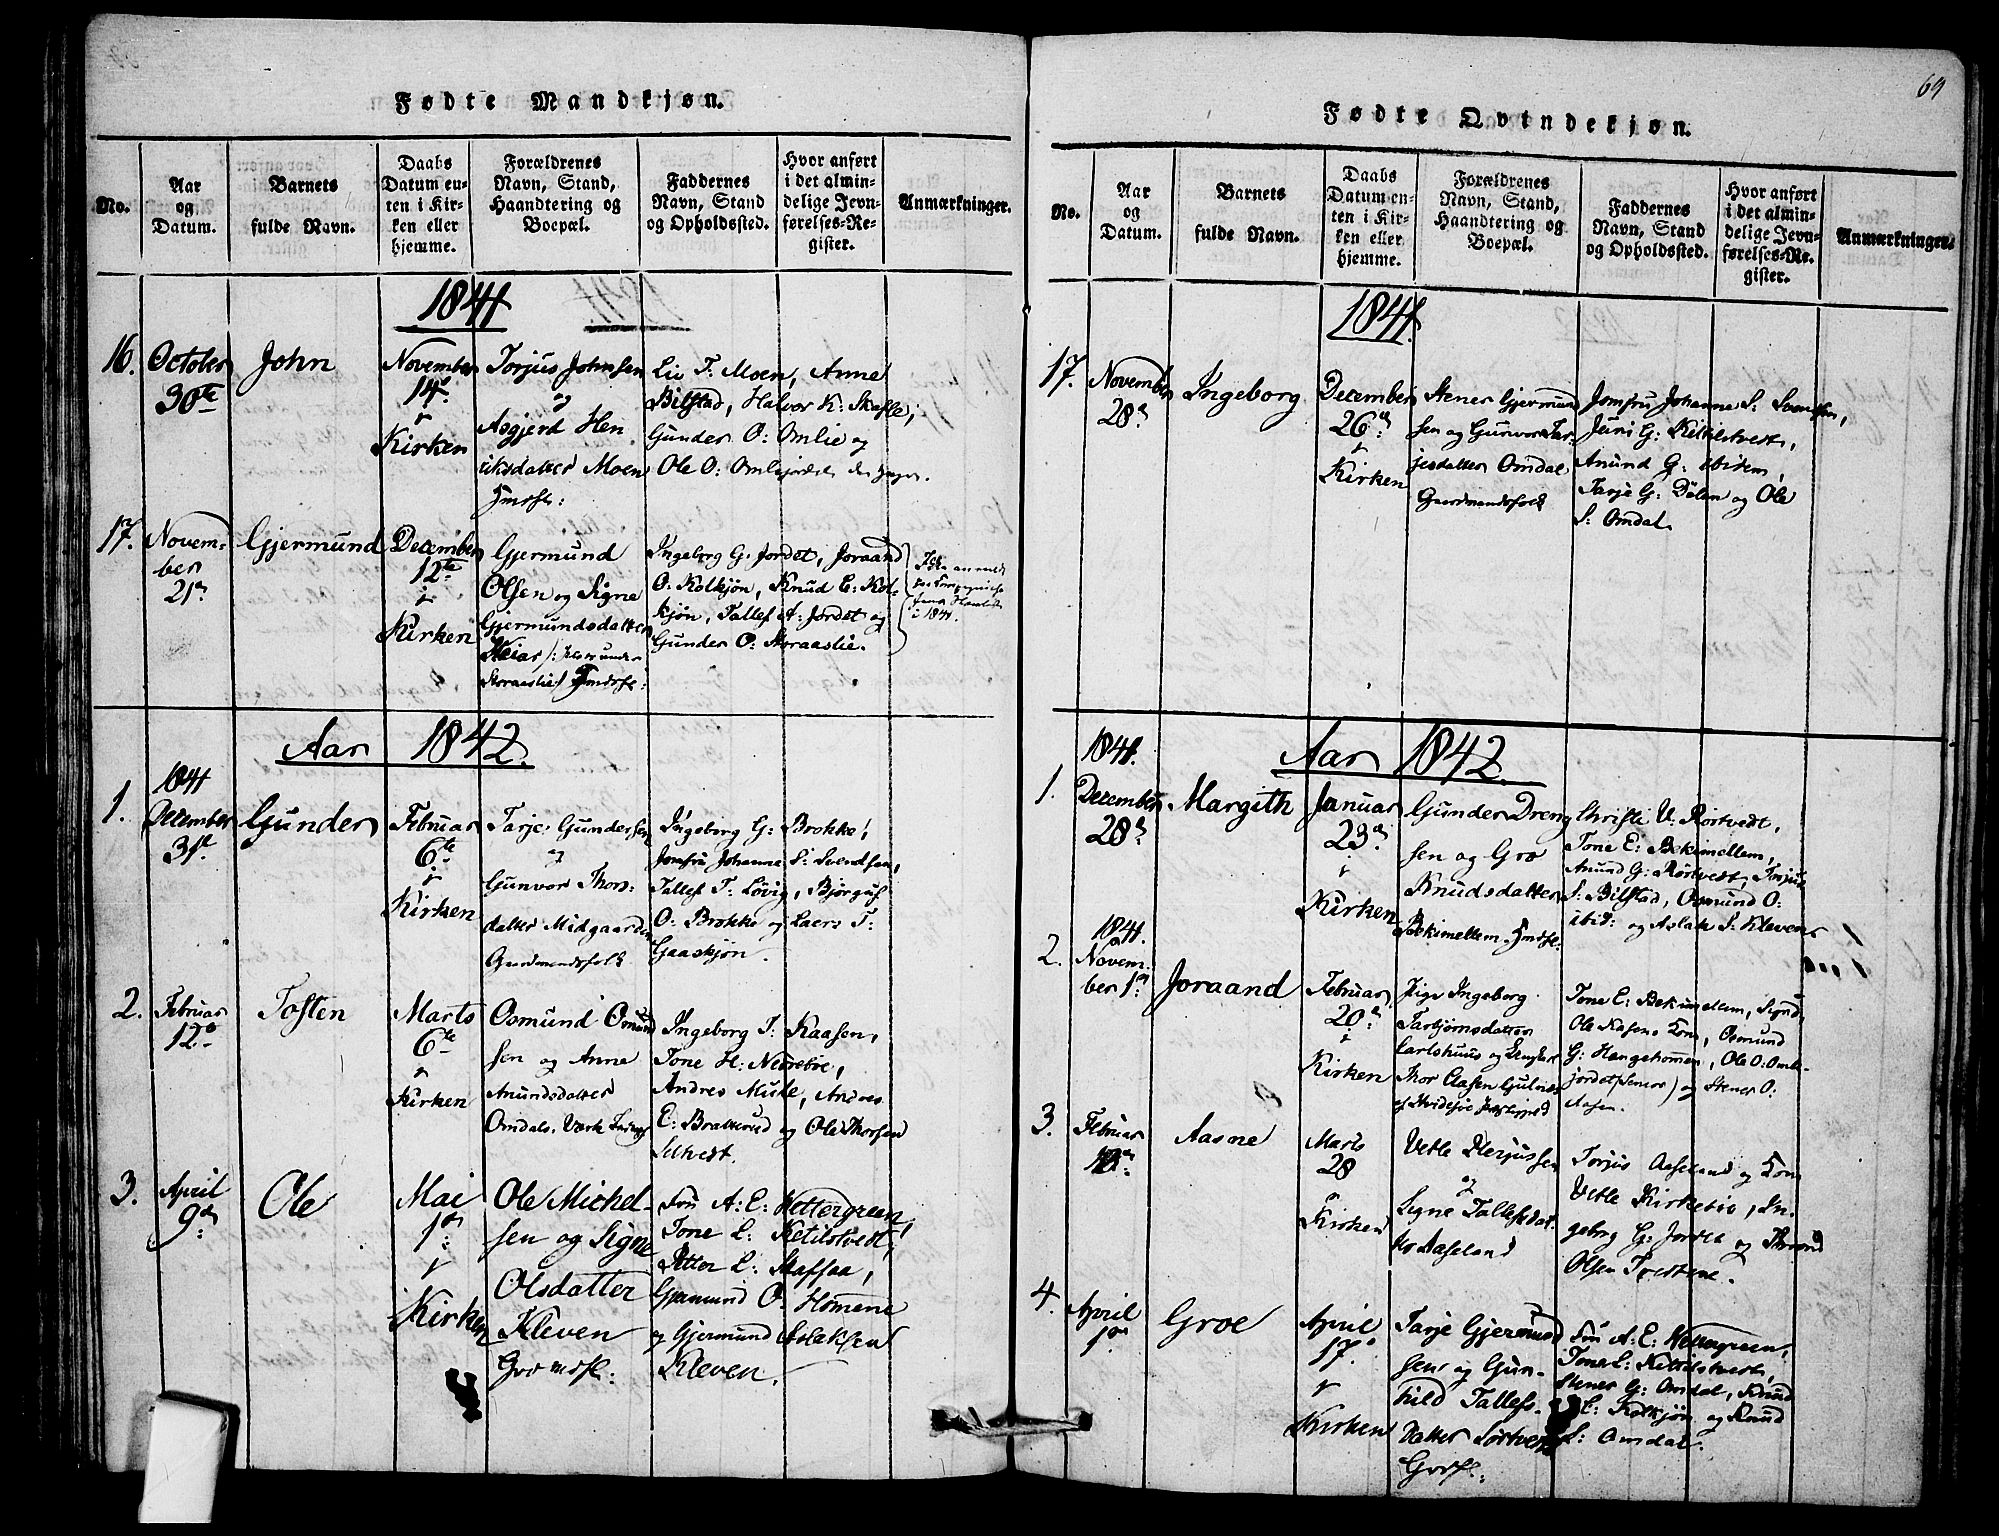 Fødte Mandkjøn.
No.
Aar
og
Datum.
Barnets
fulde Navn.
Daabs
Datum en-
ten i Kir-
ken eller
hjemme.
Forældrenes
Navn, Stand,
Haandtering og
Boepæl.
Faddernes
Navn, Stand
og Opholdssted.
Hvor anført
i det almin-
delige Jevn-
førelses-Re-
gister.
Anmærkninger.
1841
16.
October
30te
John
November
14de
i
Kirken
Torjus Johnsen
og
Asgjerd Hen
riksdatter Moen
Liv T: Moen, Anne
Bilstad, Halvor K:
Gunder O: Omlie og
Ole O:
17.
Novem-
ber
21de
Gjermund
December
12te
i
Kirken
Gjermund
Olsen og Signe
Gjermundsdatter
Heiar
Ingeborg G: Jordet, Joraand
O: Kolkjøn, Knud E: Kol-
kjøn, Tallef A: Jordet og
Gunder O: Storaaslie.
i 1841.
Aar 1842.
1.
1841
December
31te
Gunder
Februar
6te
i
Kirken
Tarje Gundersen
og
Gunvor Thors-
datter Midgaarden
Gaardmandsfolk
Ingeborg G: Brokke,
Jomfru Johanne S: Svendsen,
Tallef T: Løvig, Bjørguf
O: Brokke og Laers T:
Gaaskjøn.
2.
Februar
12te
Tosten
Marts
6te
i
Kirken
Osmund Osmund
sen og Anne
Anundsdatter
Omdals Værk
Ingeborg T: Kaasen,
Tone H: Nedrebøe,
Andres Musle, Andres
E: Bratterud og Ole Thorsen
Selvedt.
3.
April
9de
Ole
Mai
1ste
i
Kirken
Ole Michel-
sen og Signe
Olsdatter
Kleven
Fru A: E: Wettergreen,
Tone L: Ketilstvedt,
Petter L: Staffaa,
Gjermund O: Homene
og Gjermund Aslaksen
Kleven.
69
Fødte Qvindekjøn.
No.
Aar
og
Datum.
Barnets
fulde Navn.
Daabs
Datum en-
ten i Kir-
ken eller
hjemme.
Forældrenes
Navn, Stand,
Haandtering og
Boepæl.
Faddernes
Navn, Stand
og Opholdssted.
Hvor anført
i det almin-
delige Jevn-
førelses-Re-
gister.
Anmærkninger.
1841.
17.
November
28de
Ingeborg
December
26de
i
Kirken
Stener Gjermund
sen og Gunvor Tar-
jesdatter Omdal
Gaardmandsfolk
Jomfru Johanne S: Svendsen,
Juri G: Kittilstvedt,
Anund G: ibidem,
Tarje G: Dalen og Ole
S: Omdal.
Aar 1842.
1.
1841.
December
28de
Margith
Januar
23de
i
Kirken
Gunder Dreng
sen og Gro
Knudsdatter
Bekimellem.
Christi V: Rørtvedt,
Tone E: Bekimellem,
Anund G: Rørtvedt, Torjus
S: Bilstad, Osmund O:
ibid: og Aslak S: Kleven
2.
1841.
Novem-
ber 1ste
Joraand
Februar
20de
i
Kirken
Pige Ingeborg
Tarbjørnsdatter
Carlshuus og
Thor Olasen Gulnes
Tone E: Bekimellem,
Ole Kasen, Osmund
G: Haugehomen, Ole O: Omli-
jordet (Senior) og Stener O:
Aasen.
3.
Februar
Aasne
Marts
28
i
Kirken
Vetle Herjussen
og
Signe Tallefsdat-
ter Aaseland
Torjus Aaseland og Kone
Vetle Kirkebøe, In-
geborg G: Jordet og Thrond
Olsen Tvedtene.
4.
April
1ste
Groe
April
17de
i
Kirken
Tarje Gjermund
sen og Gun-
hild Tallefs-
datter
Fru A: E: Wettergreen,
Tone L: Kittilstvedt,
Stener G: Omdal, Knud
E: Kolkjøn og Knud
S: Omdal.